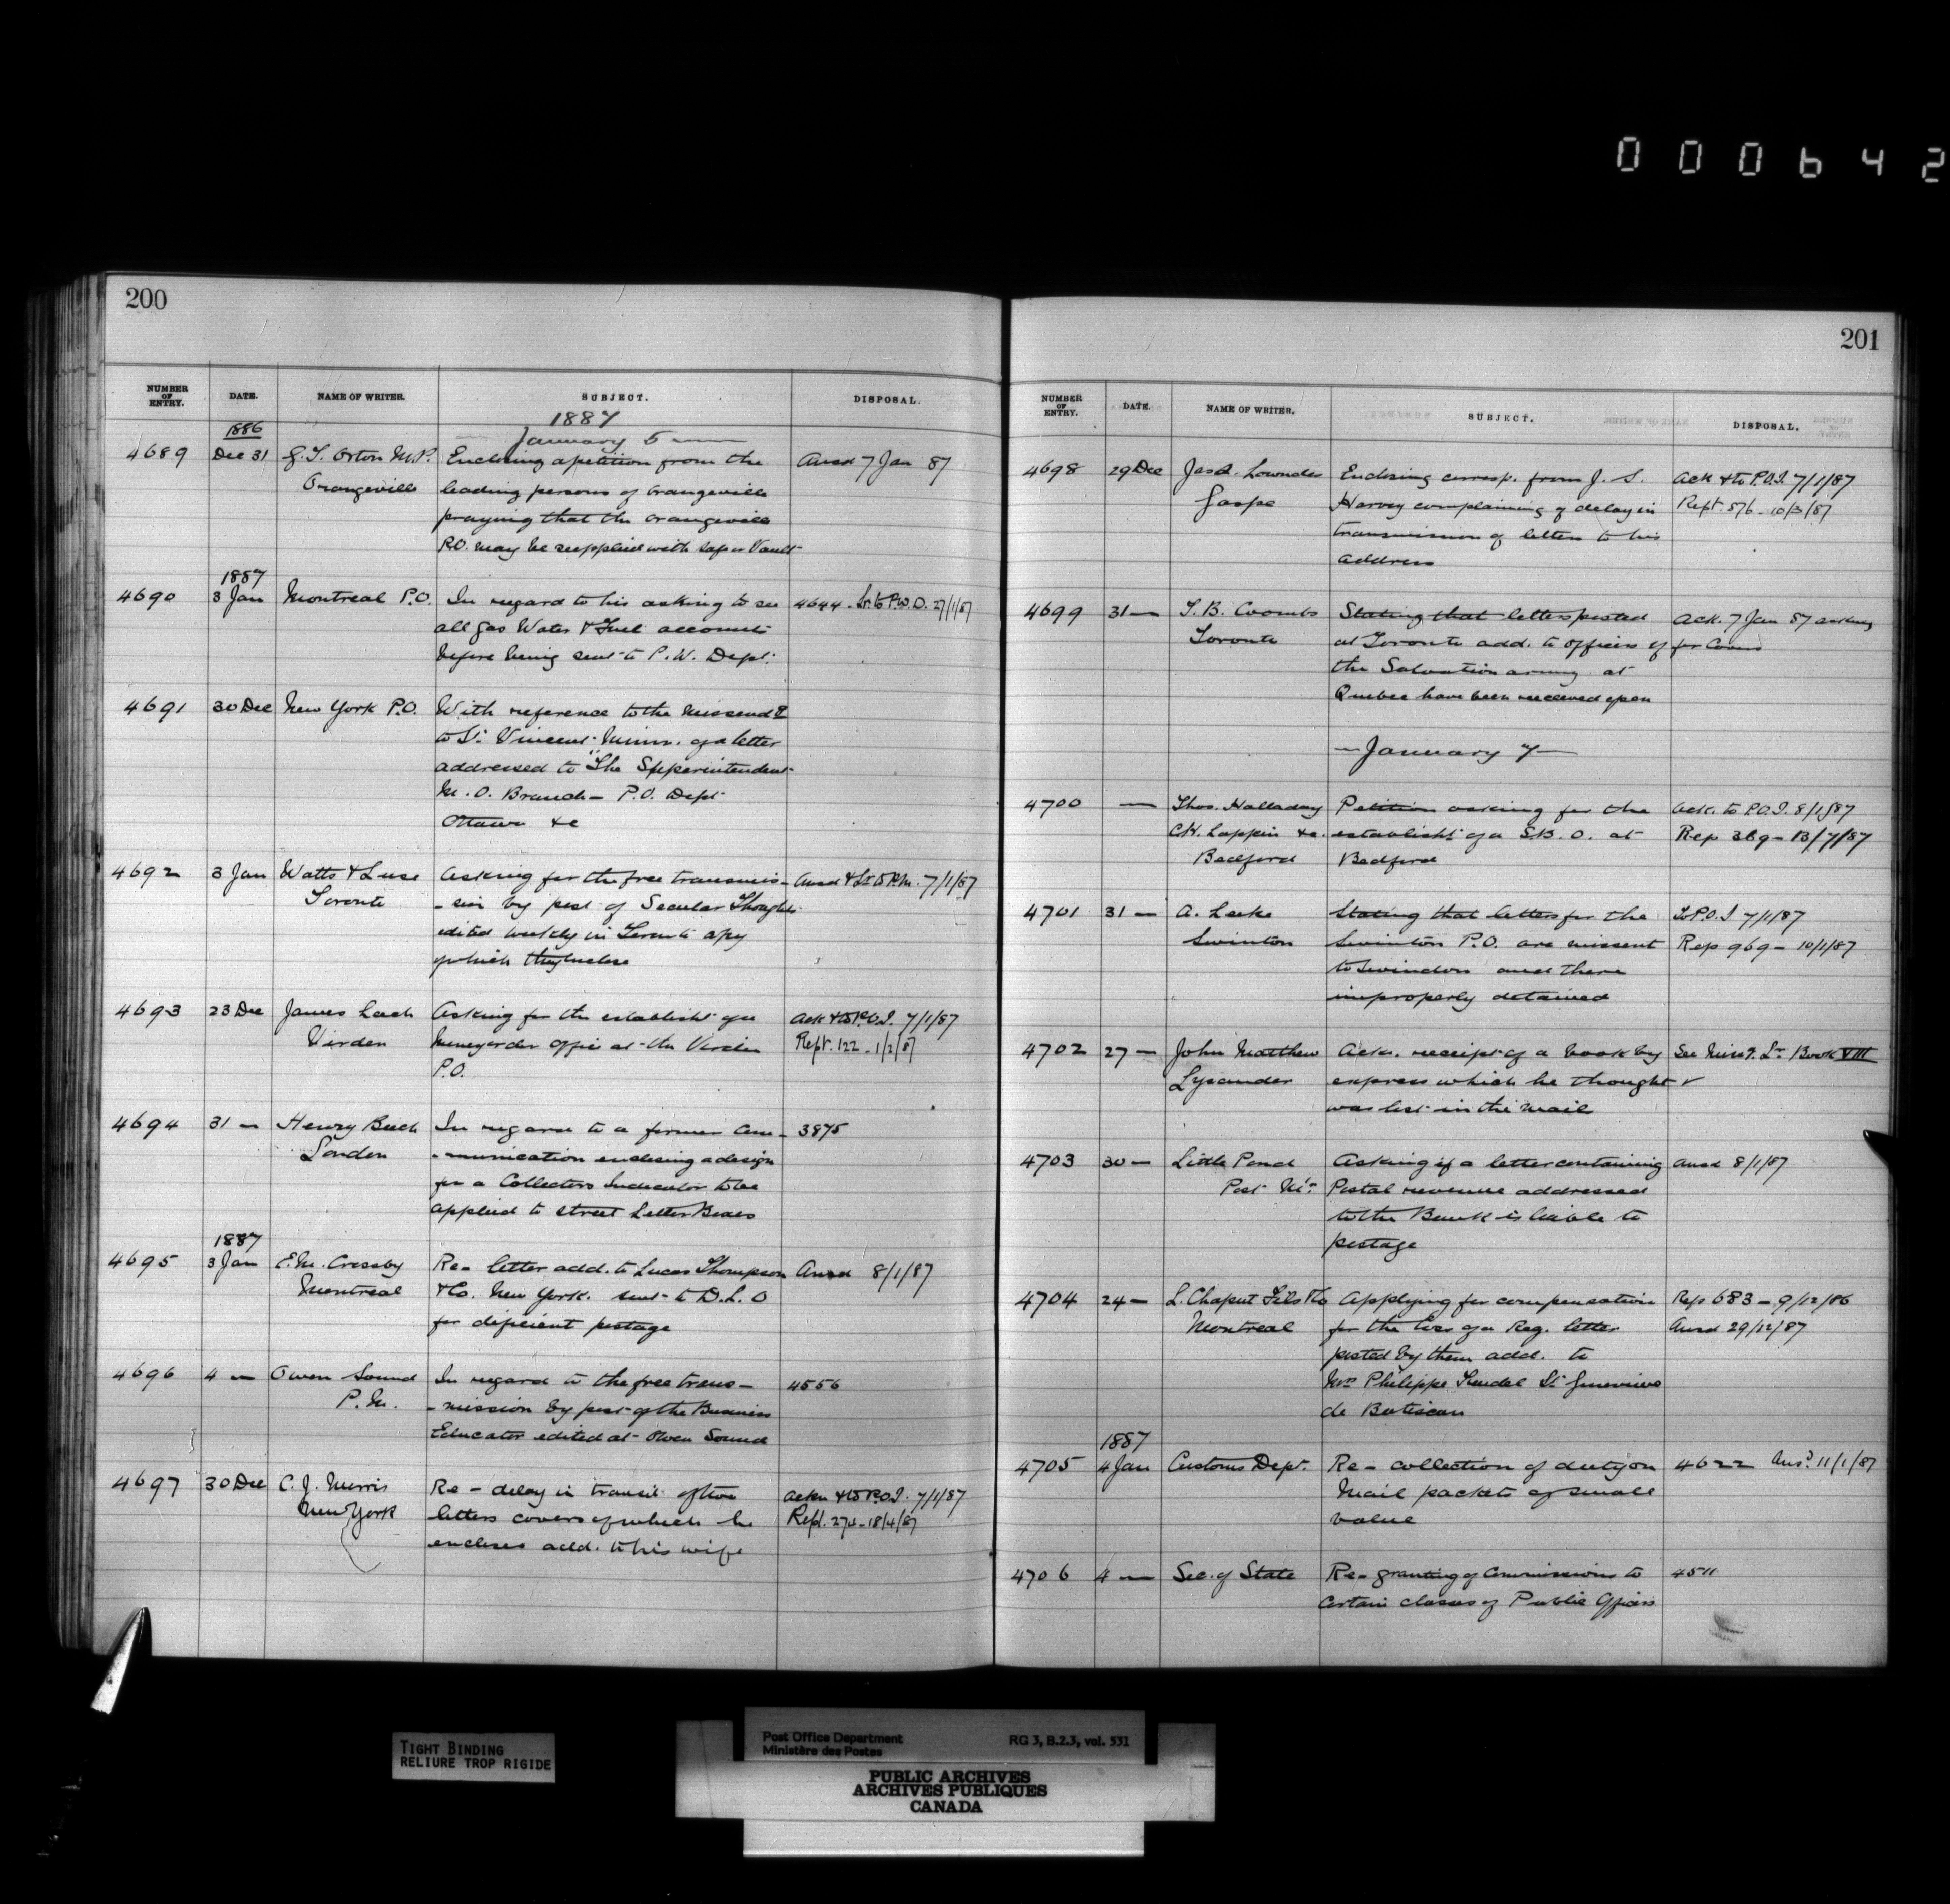 000642
200
NUMBER OF ENTRY. DATE. NAME OF WRITER. SUBJECT. DISPOSAL.
1887
January 5
1886
4689 Dec 31 G. T. Orton M.P. Enclosing a petition from the Ansd 7 Jan 87
Orangeville leading persons of Orangeville
praying that the Orangeville
P.O. may be supplied with safe or Vault
1887
4690 3 Jan Montreal P.O. In regard to his asking to see 4644 - Lr. to P.W.D. 27/1/87
all Gas Water & Fuel accounts
before being sent to P.W. Dept.
4691 30 Dec New York P.O. With reference to the missend g
to St. Vincent Minn. of a letter
addressed to "The Superintendent
M.O. Branch - P.O. Dept
Ottawa &c
4692 3 Jan Watts & Luse Asking for the free transmis- Ansd & Lr. to P.M. 7/1/87
Toronto - sion by post of Secular Thought
edited weekly in Toronto a py
of which they enclose
4693 23 Dec James Leach Asking for the establisht. of a Ack & to P.O.I. 7/1/87
Virden Moneyorder office at the Virden Rept. 122 - 1/2/87
P.O.
4694 31 — Henry Beech In regard to a former com- 3875
London - munication enclosing a design
for a Collectors Indicator to be
applied to street Letter Boxes
1887
4695 3 Jan E.M. Crossby Re- letter add. to Lucas Thompson Ansd 8/1/87
Montreal & Co. New York. sent to D.L.O
for deficient postage
4696 4 — Owen Sound In regard to the free trans- 4556
P.M. - mission by post of the Business
Educator edited at Owen Sound
4697 30 Dec C. J. Morris Re - delay in transit of two Ackn & to P.O.I. 7/1/87
New York letters covers of which he Rept. 274 - 18/4/87
encloses add. to his wife
201
NUMBER OF ENTRY. DATE. NAME OF WRITER. SUBJECT. DISPOSAL.
4698 29 Dec Jas A. Lowndes Enclosing corresp. from J. S. Ack & to P.O.I. 7/1/87
Gaspe Harvey complaining of delay in Rept. 576 - 10/3/87
transmission of letters to his
address
4699 31 — T. B. Coombs Stating that letters posted Ack. 7 Jan 87 asking
Toronto at Toronto add. to officers of for Covers
the Salvation army at
Quebec have been received open
— January 7 —
4700 — Thos. Halladay Petition asking for the Ack. to P.O.I. 8/1/87
C.H. Lappin &c. establisht. of a S.B.O. at Rep 389 - 13/7/87
Bedford Bedford
4701 31 — A. Leeke Stating that letters for the To P.O.I 7/1/87
Swinton Swinton P.O. are missent Rep 969 - 10/1/87
to Swindon and there
improperly detained
4702 27 — John Matthew Ackn. receipt of a book by See Missg. Lr. Book VIII
Lysander express which he thought
was lost in the mail
4703 30 — Little Pond Asking if a letter containing Ansd 8/1/87
Post Mr. Postal revenue addressed
to the Bank is liable to
postage
4704 24 — L. Chaput Fils & Co Applying for compensation Rep 683 - 9/12/86
Montreal for the loss of a Reg. letter Ansd 29/12/87
posted by them add. to
Mrs Philippe Trudel St. Genevieve
de Batiscan
1887
4705 4 Jan Customs Dept. Re - collection of duty on 4622 Ansd. 11/1/87
Mail packets of small
value
4706 4 — Sec. of State Re- granting of Commissions to 4511
certain classes of Public Officers
TIGHT BINDING
RELIURE TROP RIGIDE
Post Office Department RG 3, B.2.3, vol. 531
Ministère des Postes
PUBLIC ARCHIVES
ARCHIVES PUBLIQUES
CANADA